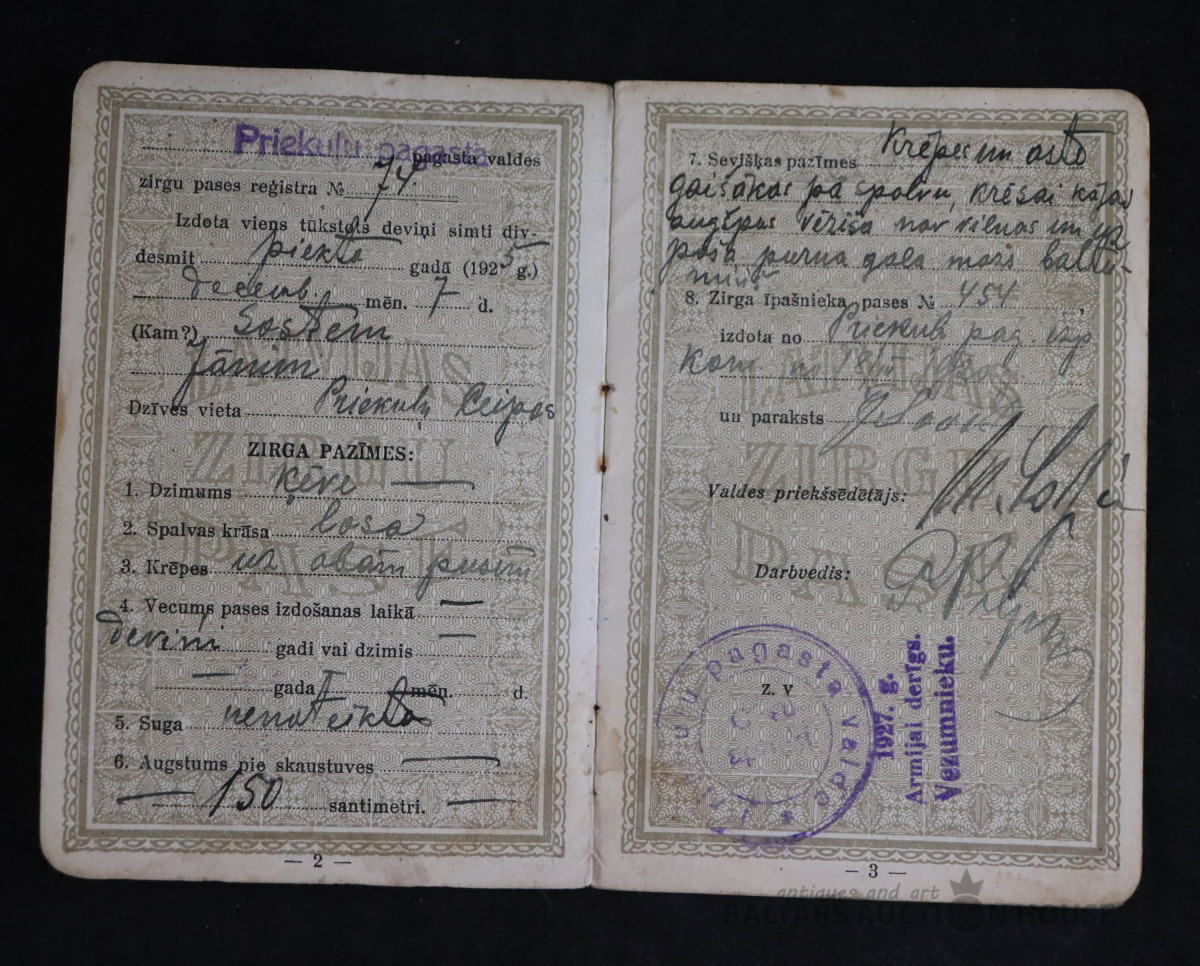 Priekuļu pagasta pagasta valdes
zirgu pases reģistra № 74.
Izdota viens tūkstots deviņi simti div-
desmit piektā gadā (1925 g.)
decemb. mēn. 7 d.
(Kam?) Sostem
Jānim
Dzīves vieta Priekuļu Ceipas
ZIRGA PAZĪMES:
1. Dzimums Ķēve —
2. Spalvas krāsa bosa
3. Krēpes uz abām pusēm
4. Vecums pases izdošanas laikā —
deviņi gadi vai dzimis —
— gada mēn. d.
5. Suga nenoteikta
6. Augstums pie skaustuves —
— 150 santimetri. —
— 2 —
7. Sevišķas pazīmes Krēpes un aste
gaišākas pa spalvu, krēsai kājas
augšpus vēzīša nav vilnas un uz
paša purna gala mazs baltu-
miņš
8. Zirga īpašnieka pases № 454,
izdota no Priekuļu pag. izp
kom no
un paraksts
Valdes priekšsēdētājs:
Darbvedis:
Z. V
Priekuļu pagasta valde *
1927. g.
Armijai derīgs.
Vezumnieku.
— 3 —
antiques and art
BALTARS AUCTION HOUSE